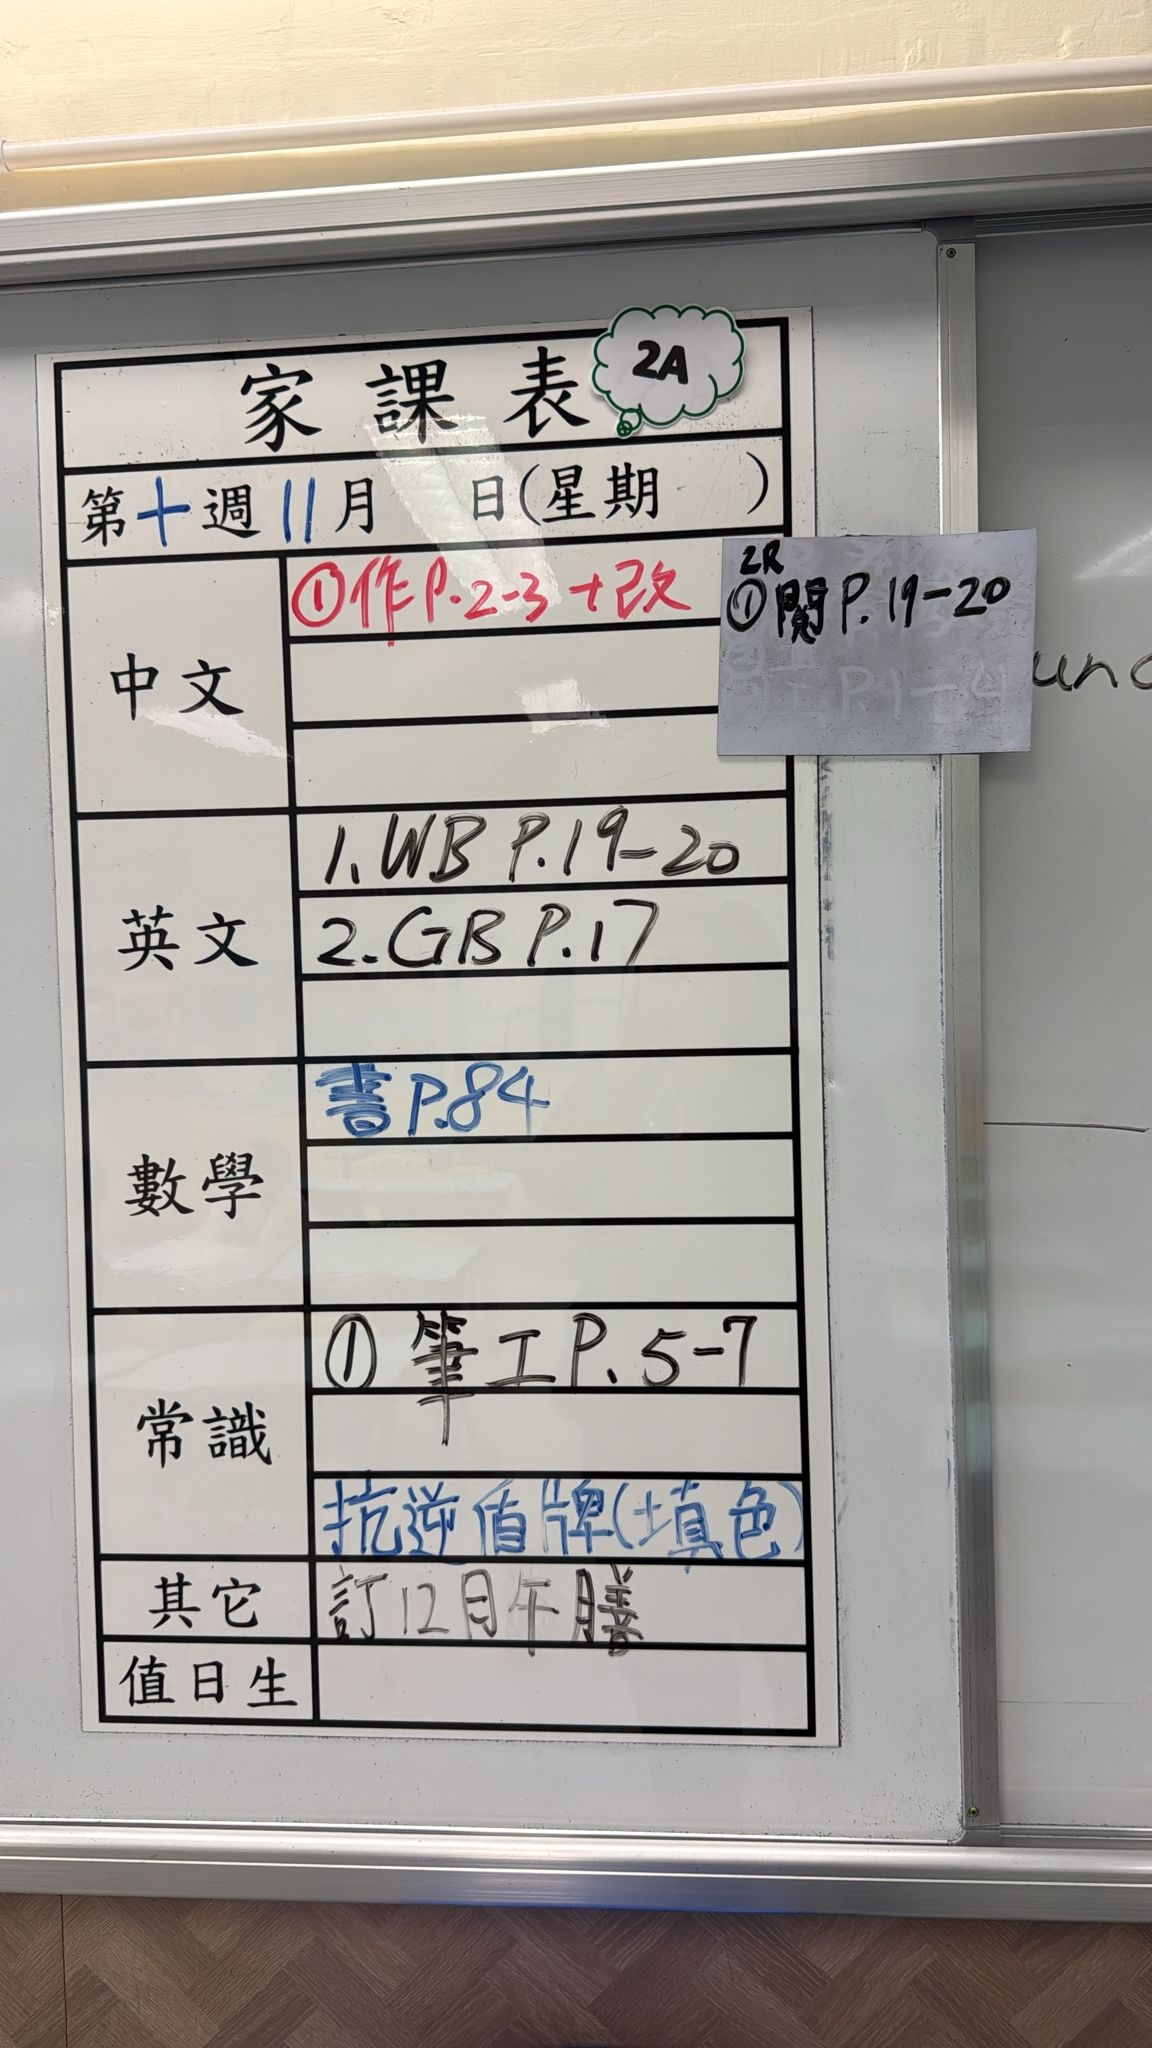 家課表
2A
第十週11月 日(星期 )
中文
①作P.2-3+改
2R
①閱P.19-20
英文
1.WB P.19-20
2.GB P.17
數學
書P.84
常識
①筆工P.5-7
抗逆盾牌(填色)
其它
訂12月午膳
值日生